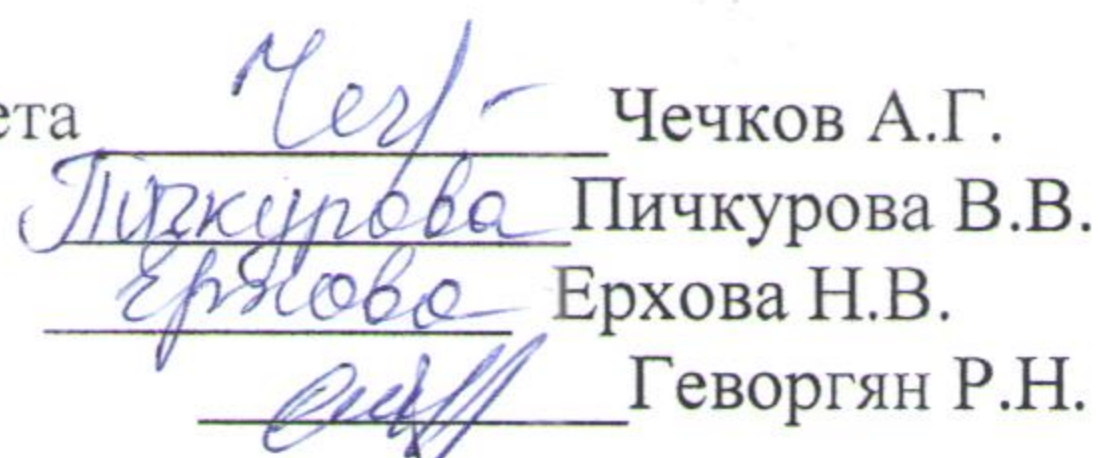 ета Чеч Чечков А.Г.
Пичкурова Пичкурова В.В.
Ерхова Ерхова Н.В.
Геворгян Р.Н.